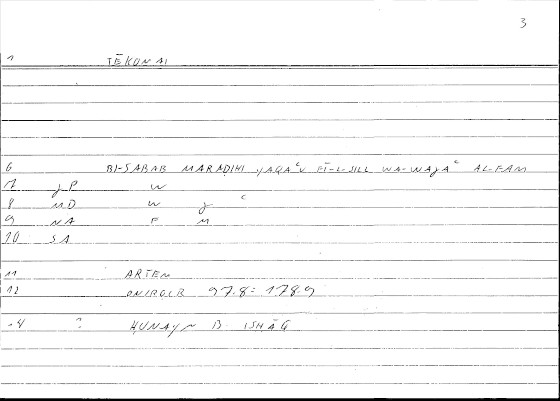 3
1 TĒKONAI
6 BI-SABAB MARAḌIHI YAQAʿU FĪ-L-SILL WA-WAJAʿ AL-FAM
7 JP W
8 MD W J ʿ
9 NA F M
10 SA
11 ARTEM
12 ONIROCR 97.8 = 178.9
-4 ? ḤUNAYN B. ISḤĀQ